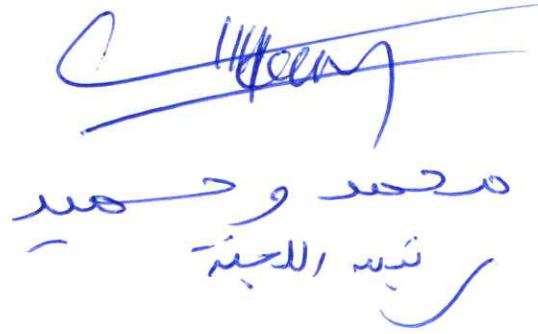 محمد وحيد
رئيس اللجنة